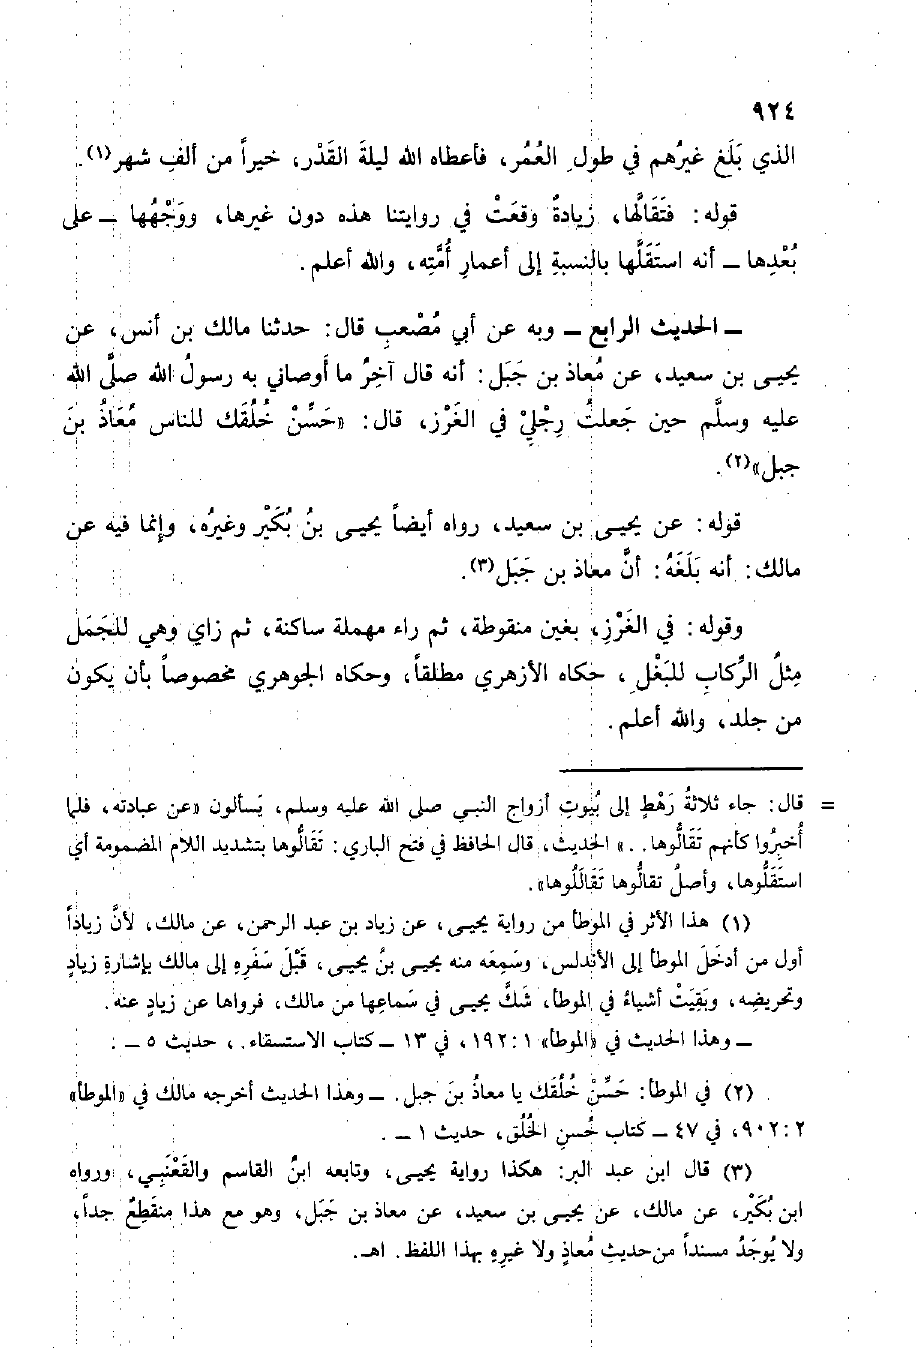 ٩٢٤
الذي بَلَغ غيرُهم في طولِ العُمُر، فأعطاه الله ليلةَ القَدْر، خيراً من ألفِ شهر(١).
قوله: فتَقَالَّها، زيادةٌ وقعَتْ في روايتنا هذه دون غيرها، ووَجْهُها ــ على
بُعْدِها ــ أنه استَقَلَّها بالنسبةِ إلى أعمارِ أُمَّتِه، والله أعلم.
ــ الحديث الرابع ــ وبه عن أبي مُصْعبٍ قال: حدثنا مالك بن أنس، عن
يحيـى بن سعيد، عن مُعاذ بن جَبَل: أنه قال آخِرُ ما أوصاني به رسولُ الله صلَّى الله
عليه وسلَّم حين جَعلتُ رِجْلِيْ في الغَرْز، قال: «حَسِّنْ خُلُقَك للناس مُعَاذُ بنَ
جبل»(٢).
قوله: عن يحيـى بن سعيد، رواه أيضاً يحيـى بنُ بُكَيْر وغيرُه، وإنما فيه عن
مالك: أنه بَلَغَهُ: أنَّ معاذ بن جَبَل(٣).
وقوله: في الغَرْزِ، بغين منقوطة، ثم راء مهملة ساكنة، ثم زاي وهي للجَمَل
مِثلُ الرِّكاب للبَغْلِ، حكاه الأزهري مطلقاً، وحكاه الجوهري مخصوصاً بأن يكون
من جلد، والله أعلم.
= قال: جاء ثلاثةُ رَهْطٍ إلى بُيُوتِ أزواج النبـي صلى الله عليه وسلم، يَسألون «عن عبادته، فلما
أُخبِرُوا كأنهم تَقَالُّوها. .» الحديث، قال الحافظ في فتح الباري: تَقَالُّوها بتشديد اللام المضمومة أي
استَقَلُّوها، وأصلُ تقالُّوها تَقَالَلُوها».
(١) هذا الأثر في الموطأ من رواية يحيـى، عن زياد بن عبد الرحمن، عن مالك، لأنَّ زياداً
أول من أدخَلَ الموطأ إلى الأندلس، وسَمِعَه منه يحيـى بنُ يحيـى، قَبْلَ سَفَرِهِ إلى مالك بإشارةِ زيادٍ
وتحريضِه، وبَقِيَتْ أشياءُ في الموطأ، شَكَّ يحيـى في سَماعِها من مالك، فرواها عن زيادٍ عنه.
ــ وهذا الحديث في «الموطأ» ١ : ١٩٢، في ١٣ ــ كتاب الاستسقاء.، حديث ٥ ــ:
(٢) في الموطأ: حَسِّنْ خُلُقَك يا معاذُ بنَ جبل. ــ وهذا الحديث أخرجه مالك في «الموطأ»
٢ : ٩٠٢، في ٤٧ ــ كتاب حُسنِ الخُلُق، حديث ١ ــ.
(٣) قال ابن عبد البر: هكذا رواية يحيـى، وتابعه ابنُ القاسم والقَعْنَبِـي، ورواه
ابن بُكَيْر، عن مالك، عن يحيـى بن سعيد، عن معاذ بن جَبَل، وهو مع هذا منقَطِعٌ جداً،
ولا يُوجَدُ مسنداً من حديثِ مُعاذٍ ولا غيرِهِ بهذا اللفظ. اهـ.